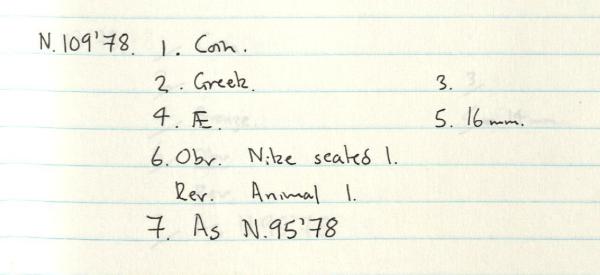 N.109'78. 1. Coin.
2. Greek. 3.
4. Æ. 5. 16mm.
6. Obv. Nike seated l.
Rev. Animal l.
7. As N.95'78